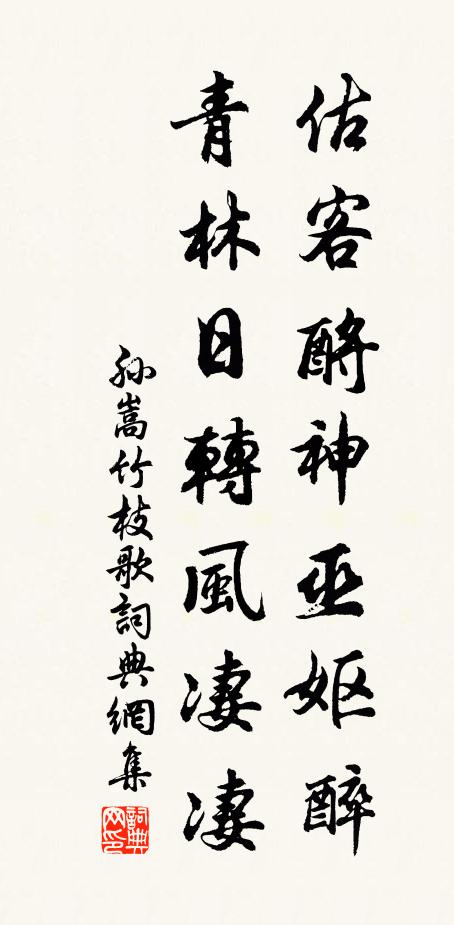 估客酹神巫妪醉
青林日轉風凄凄
孫嵩竹枝歌詞典網集
詞典网印